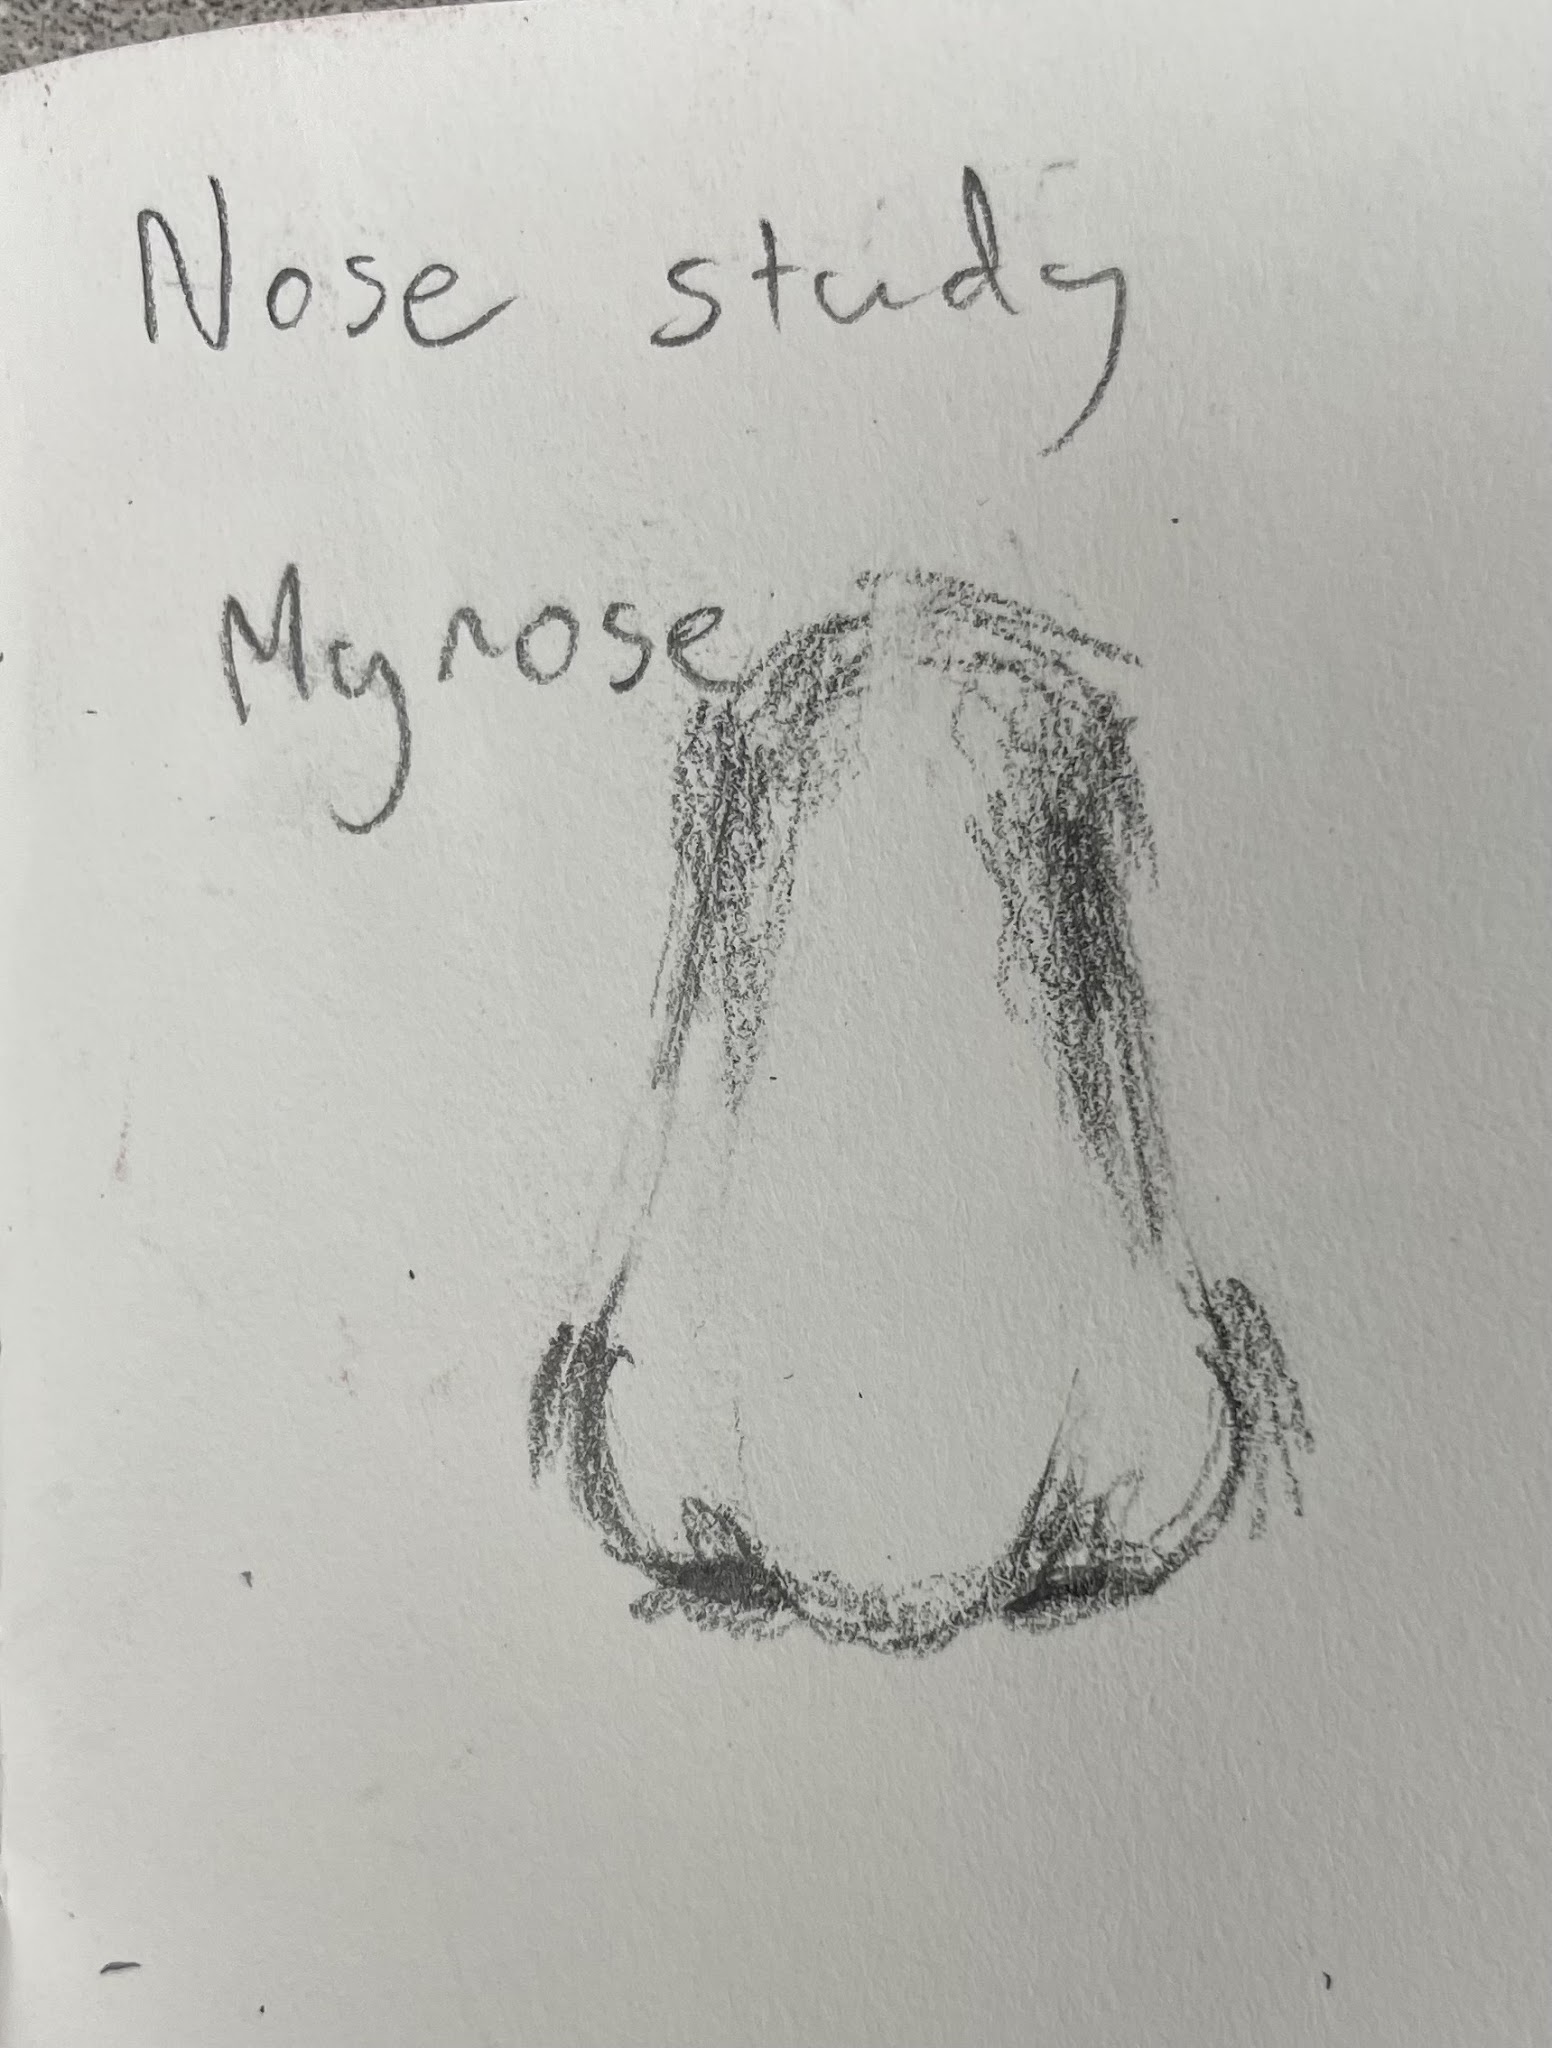 Nose study
My nose